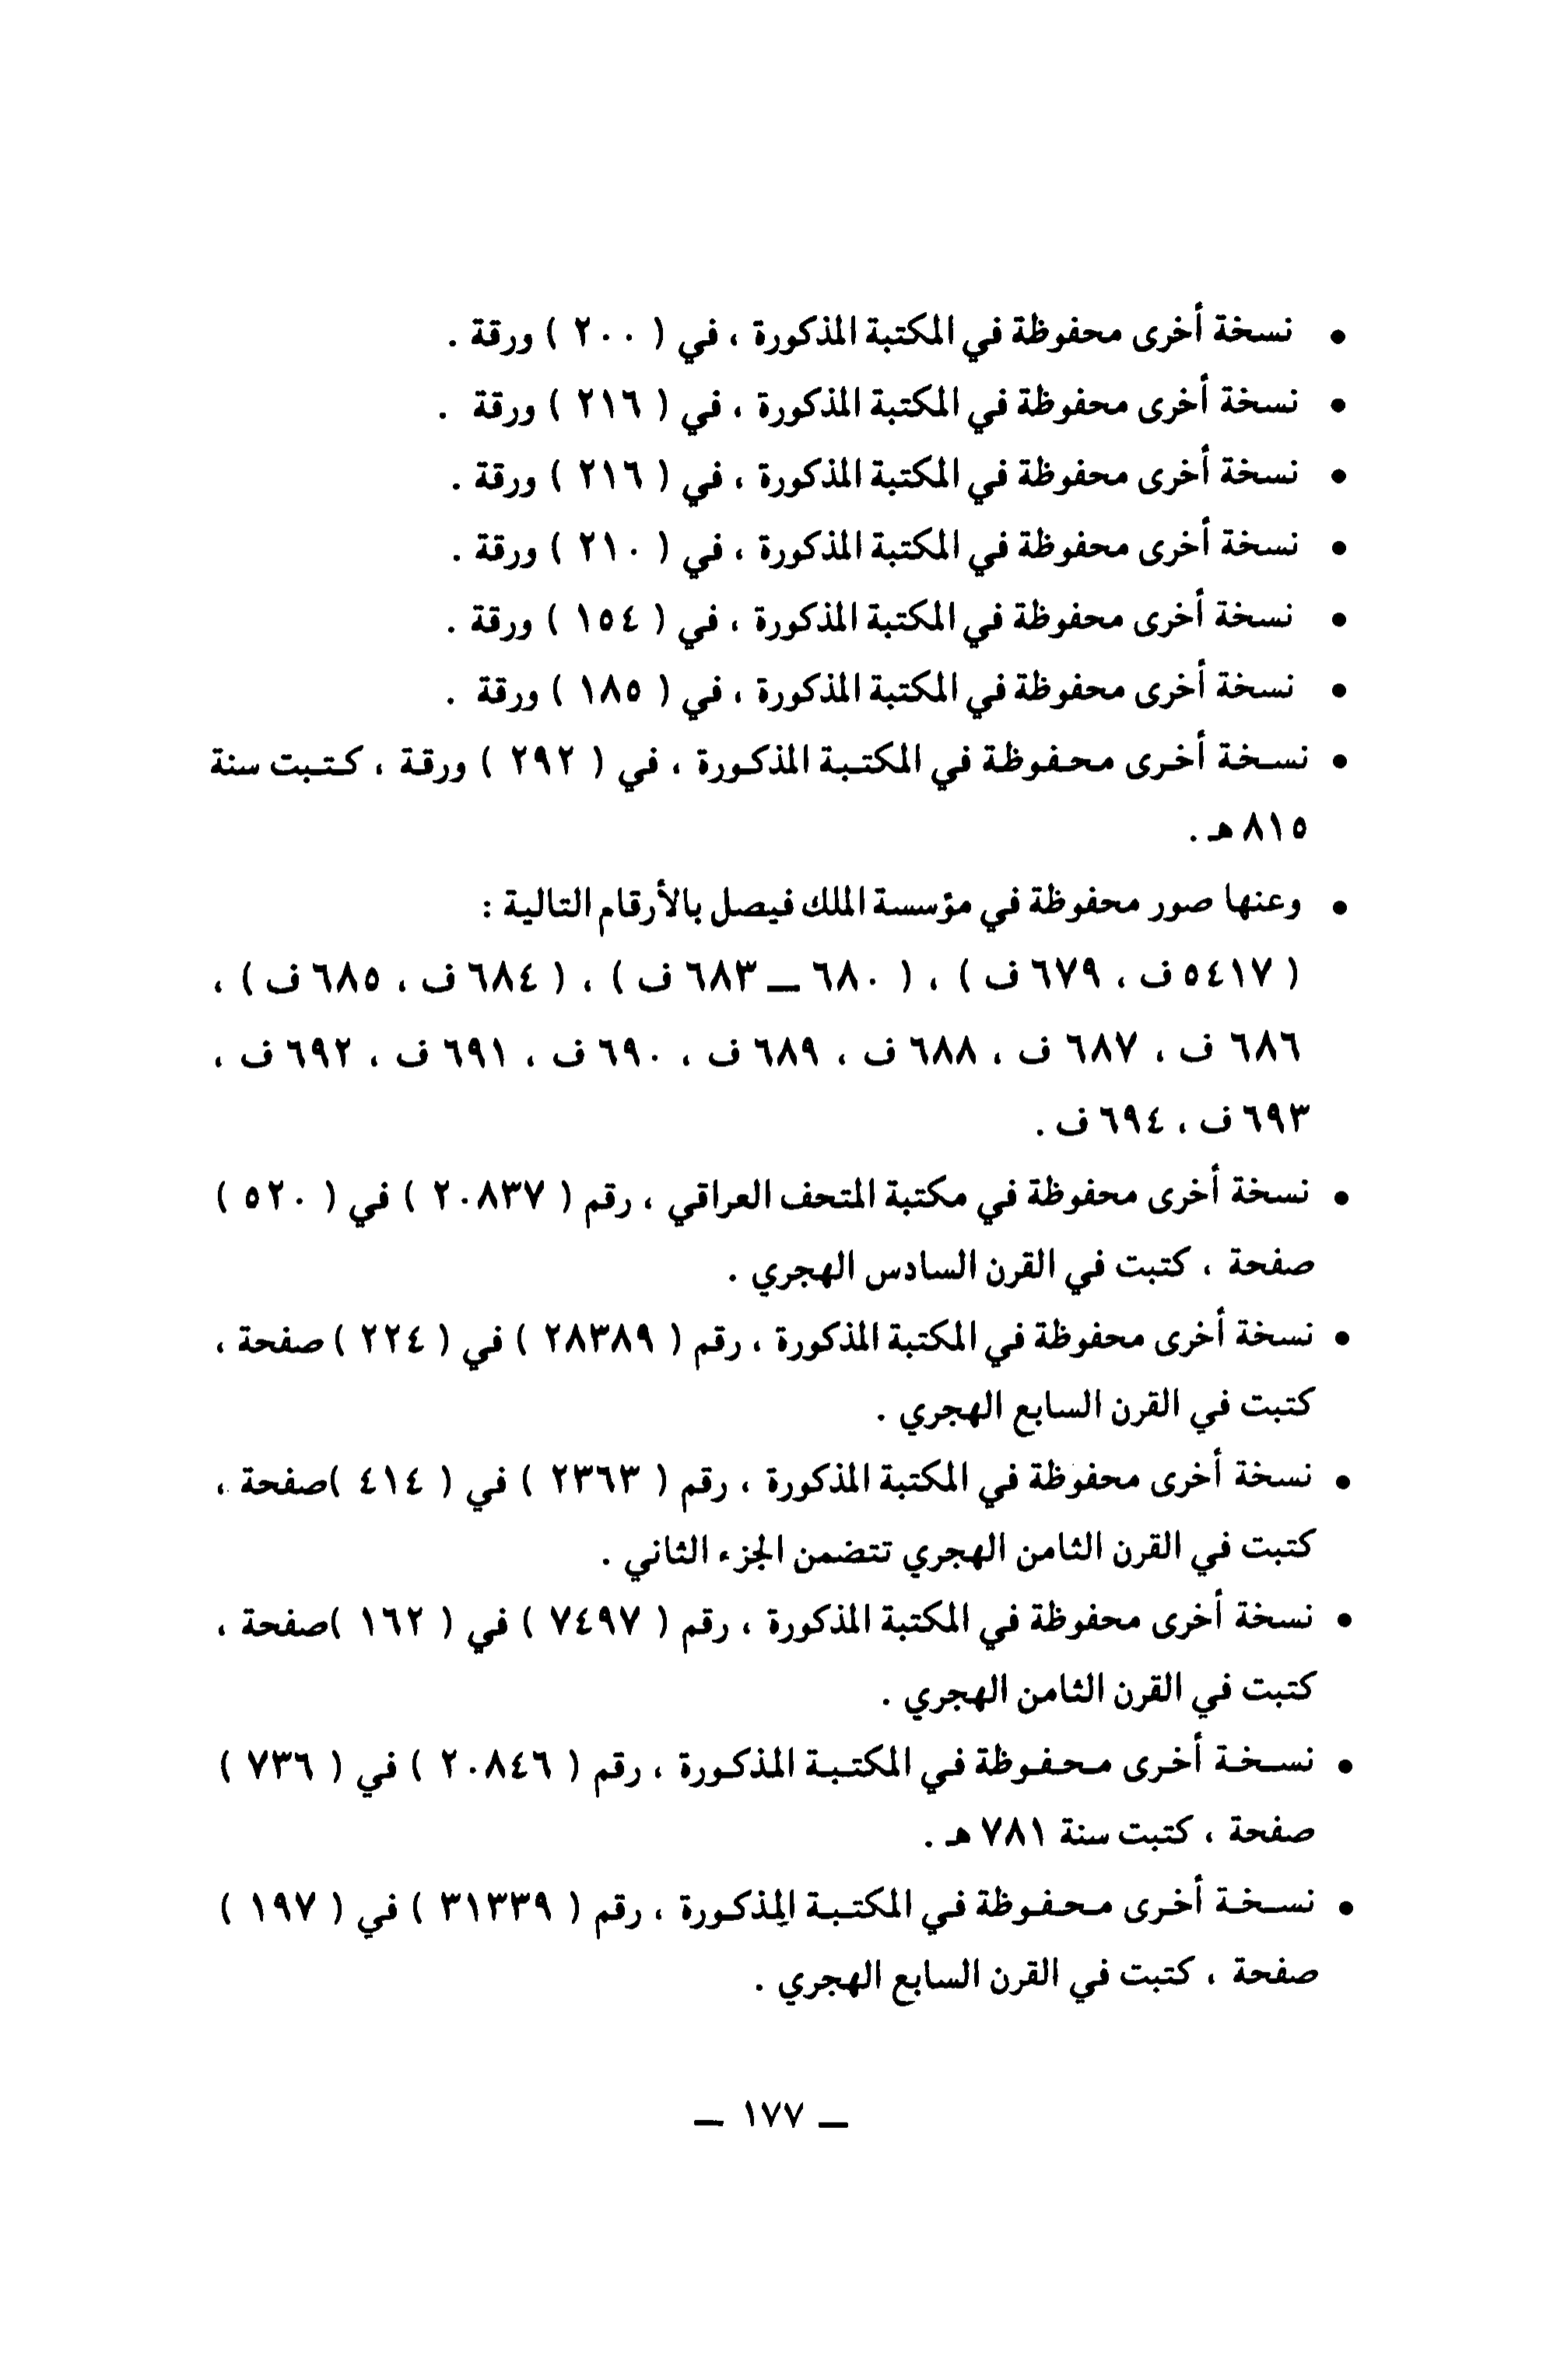 • نسخة أخرى محفوظة في المكتبة المذكورة ، في ( ٢٠٠ ) ورقة .
• نسخة أخرى محفوظة في المكتبة المذكورة ، في ( ٢١٦ ) ورقة .
• نسخة أخرى محفوظة في المكتبة المذكورة ، في ( ٢١٦ ) ورقة .
• نسخة أخرى محفوظة في المكتبة المذكورة ، في ( ٢١٠ ) ورقة .
• نسخة أخرى محفوظة في المكتبة المذكورة ، في ( ١٥٤ ) ورقة .
• نسخة أخرى محفوظة في المكتبة المذكورة ، في ( ١٨٥ ) ورقة .
• نسخة أخرى محفوظة في المكتبة المذكورة ، في ( ٢٩٢ ) ورقة ، كتبت سنة
٨١٥ هـ .
• وعنها صور محفوظة في مؤسسة الملك فيصل بالأرقام التالية :
( ٥٤١٧ ف ، ٦٧٩ ف ) ، ( ٦٨٠ ــ ٦٨٣ ف ) ، ( ٦٨٤ ف ، ٦٨٥ ف ) ،
٦٨٦ ف ، ٦٨٧ ف ، ٦٨٨ ف ، ٦٨٩ ف ، ٦٩٠ ف ، ٦٩١ ف ، ٦٩٢ ف ،
٦٩٣ ف ، ٦٩٤ ف .
• نسخة أخرى محفوظة في مكتبة المتحف العراقي ، رقم ( ٢٠٨٣٧ ) في ( ٥٢٠ )
صفحة ، كتبت في القرن السادس الهجري .
• نسخة أخرى محفوظة في المكتبة المذكورة ، رقم ( ٢٨٣٨٩ ) في ( ٢٢٤ ) صفحة ،
كتبت في القرن السابع الهجري .
• نسخة أخرى محفوظة في المكتبة المذكورة ، رقم ( ٢٣٦٣ ) في ( ٤١٤ )صفحة ،
كتبت في القرن الثامن الهجري تتضمن الجزء الثاني .
• نسخة أخرى محفوظة في المكتبة المذكورة ، رقم ( ٧٤٩٧ ) في ( ١٦٢ )صفحة ،
كتبت في القرن الثامن الهجري .
• نسخة أخرى محفوظة في المكتبة المذكورة ، رقم ( ٢٠٨٤٦ ) في ( ٧٣٦ )
صفحة ، كتبت سنة ٧٨١ هـ .
• نسخة أخرى محفوظة في المكتبة المذكورة ، رقم ( ٣١٣٣٩ ) في ( ١٩٧ )
صفحة ، كتبت في القرن السابع الهجري .
ــ ١٧٧ ــ